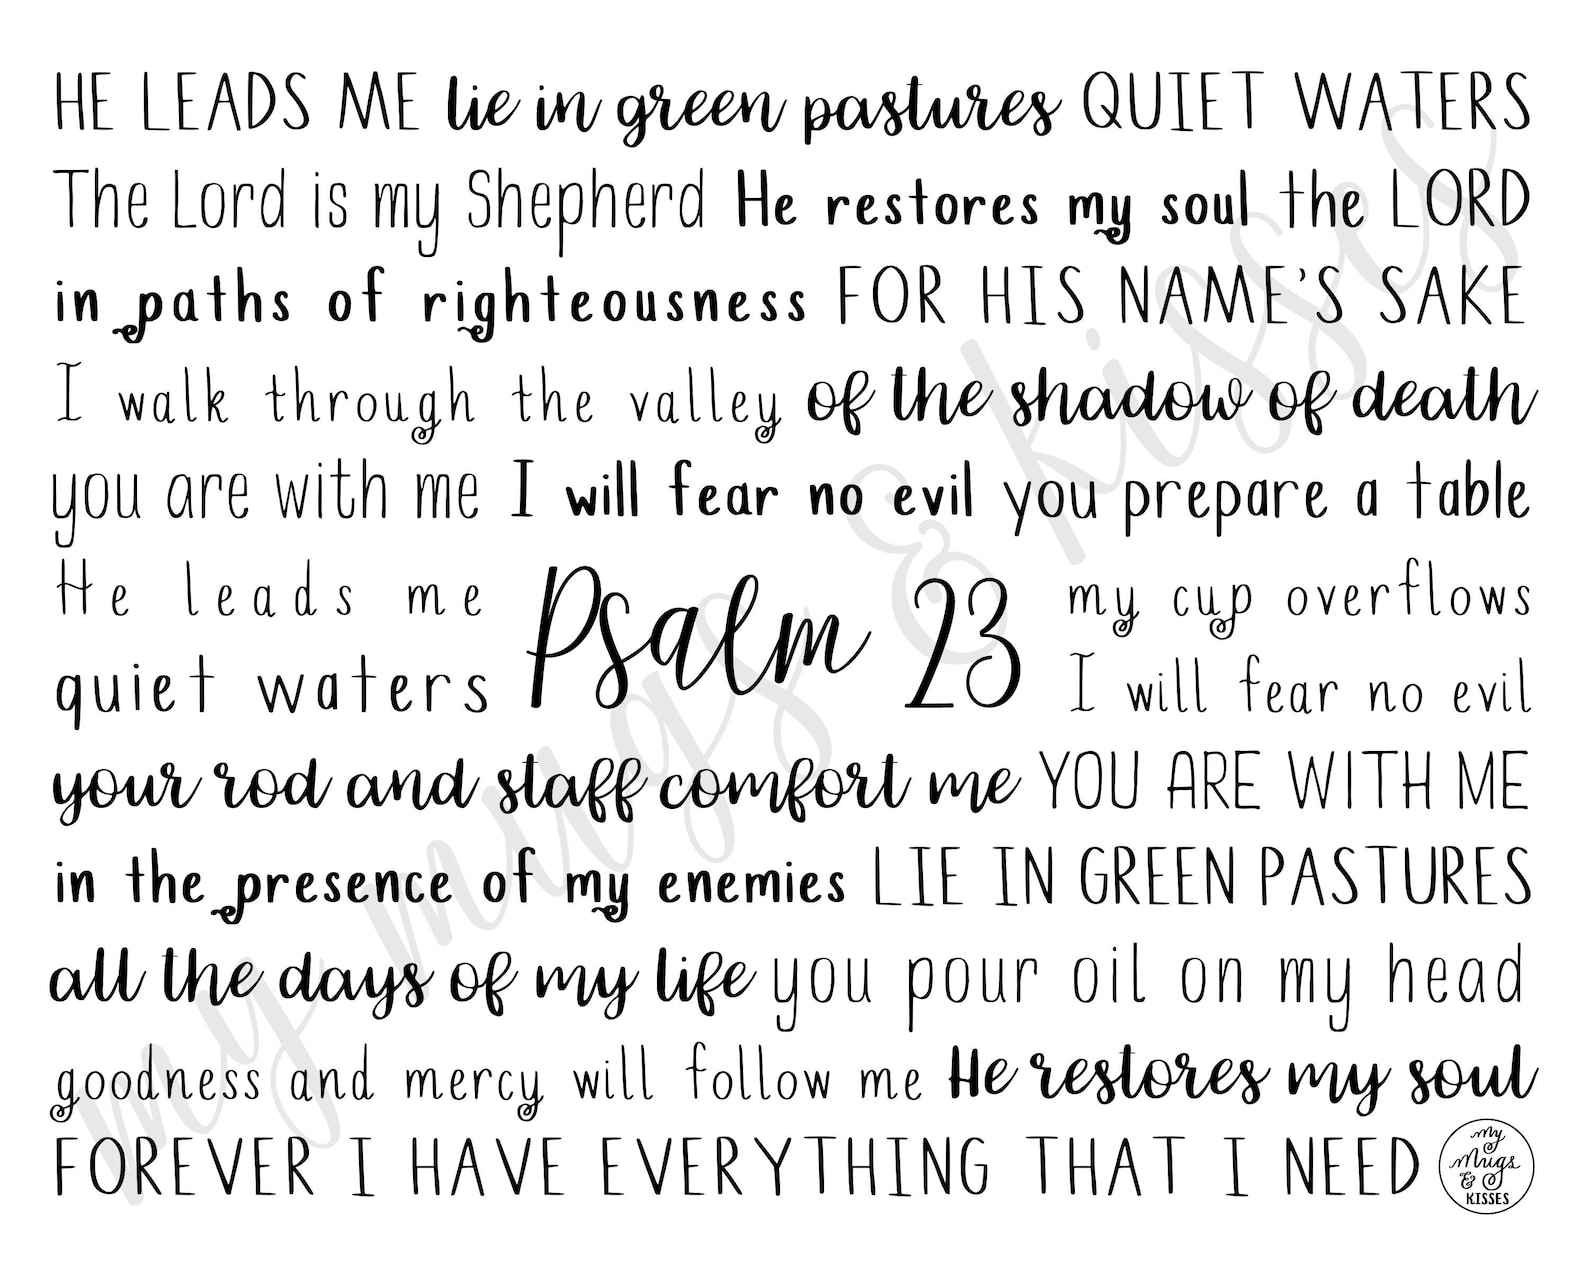 HE LEADS ME lie in green pastures QUIET WATERS
The Lord is my Shepherd He restores my soul the LORD
in paths of righteousness FOR HIS NAME'S SAKE
I walk through the valley of the shadow of death
you are with me I will fear no evil you prepare a table
He leads me
quiet waters
Psalm 23
my cup overflows
I will fear no evil
your rod and staff comfort me YOU ARE WITH ME
in the presence of my enemies LIE IN GREEN PASTURES
all the days of my life you pour oil on my head
goodness and mercy will follow me He restores my soul
FOREVER I HAVE EVERYTHING THAT I NEED
my
mugs
&
KISSES
my mugs & kisses